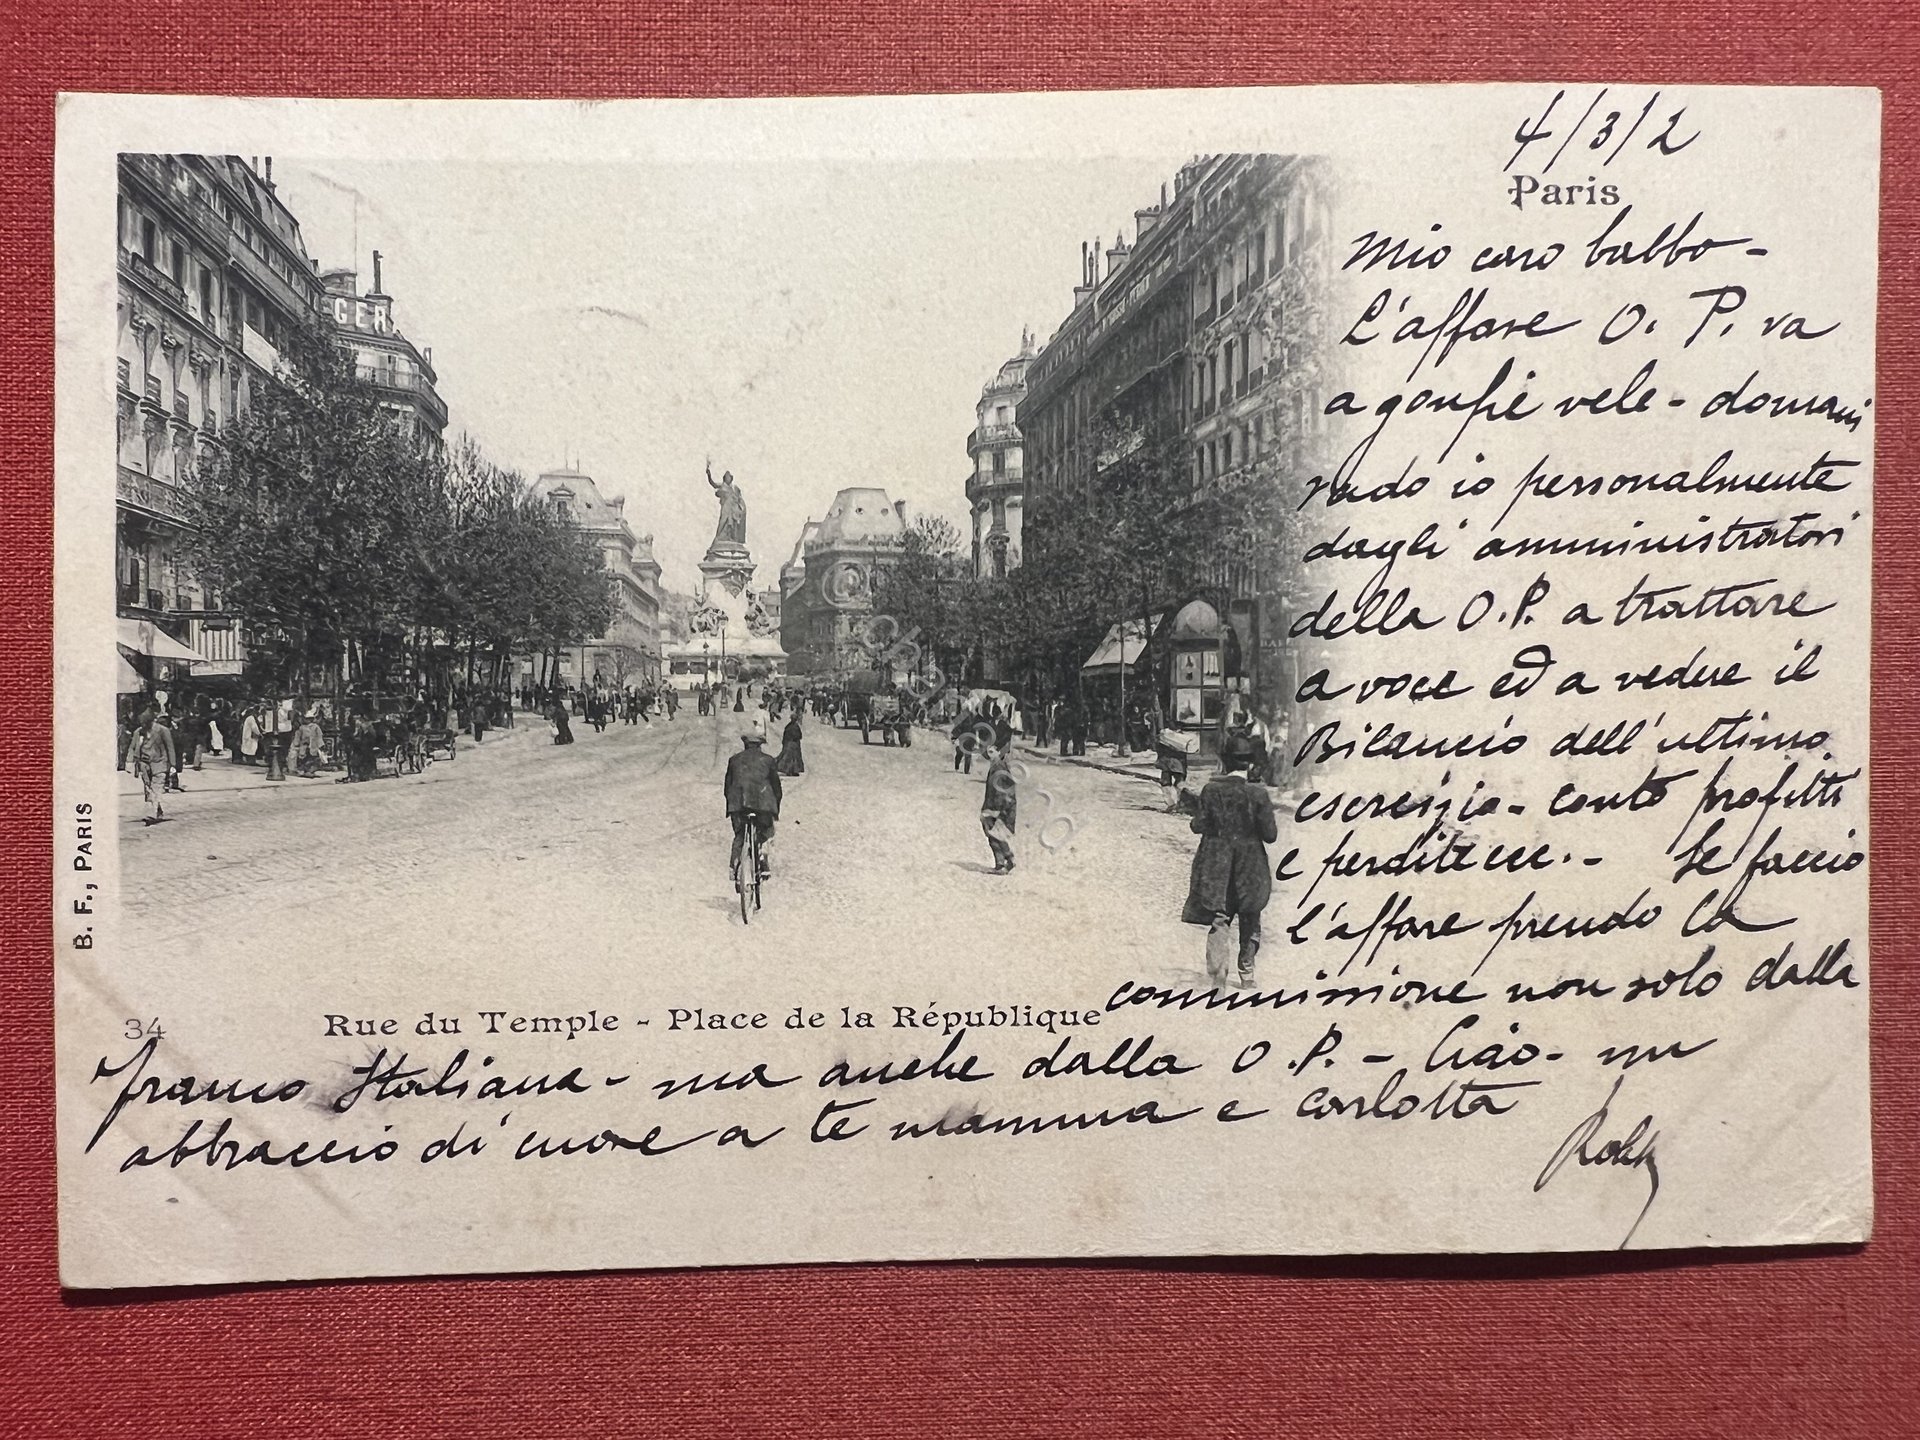 4/3/2
Paris
Mio caro babbo -
L'affare O. P. va
a gonfie vele - domani
vado io personalmente
dagli amministratori
della O.P. a trattare
a voce ed a vedere il
Bilancio dell'ultimo
esercizio - conto profitti
e perdite ecc. - Se faccio
l'affare prendo la
commissione non solo dalla
franco Italiana - ma anche dalla O.P. - Ciao - un
abbraccio di cuore a te mamma e Carlotta
GER
B. F., PARIS
34
Rue du Temple - Place de la République
© charta s.r.l.